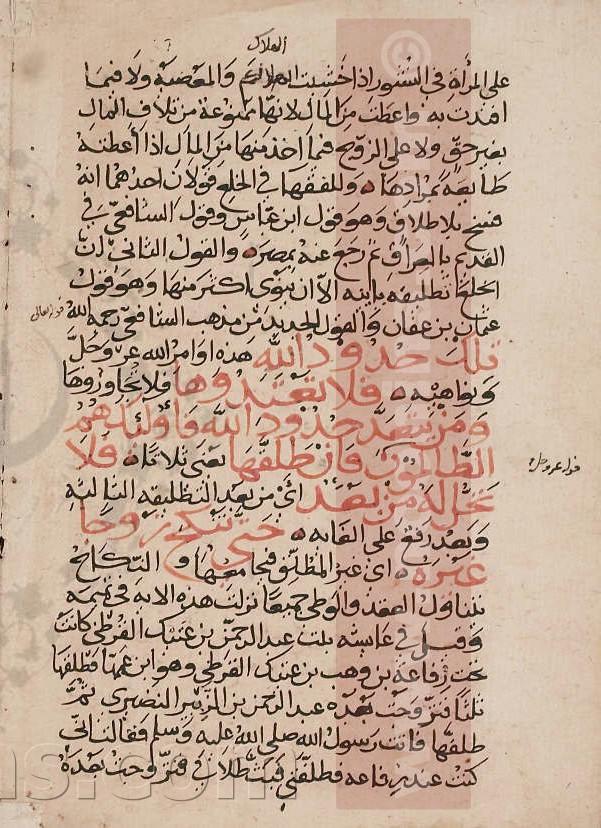 الهلاك
على المرأة في النشوز اذا خشيت الهلاك والمعصية ولا فيما
افتدت به واعطت من المال لانها ممنوعة من تلاف المال
بغير حق ولا على الزوج فيما اخذ منها من المال اذا أعطته
طايعة بمرادها وللفقها في الخلع قولان احدهما انه
فسخ بلا طلاق وهو قول ابن عباس وقول الشافعي في
القديم بالعراق ثم رجع عنه بمصر والقول الثاني ان
الخلع تطليقة باينة الا ان ينوى اكثر منها وهو قول
عثمان بن عفان والقول الجديد من مذهب الشافعي رحمه الله
قوله تعالى
تلك حدود الله هذه اوامر الله عز وجل
ونواهيه فلا تعتدوها فلا تجاوزوها
ومن يتعد حدود الله فأولئك هم
الظالمون فان طلقها يعنى ثلاثا فلا
قوله عز وجل
تحل له من بعد أي من بعد التطليقة الثالثة
وبعد رفع على الغاية حتى تنكح زوجا
غيره اى غير المطلق فيجامعها والنكاح
يتناول العقد والوطى جميعا نزلت هذه الاية في تميمة
وقيل في عايشة بنت عبد الرحمن بن عتيك القرظى كانت
تحت رفاعة بن وهب بن عتيك القرظي وهو ابن عمها فطلقها
ثلثا فتزوجت بعده عبد الرحمن بن الزبير النضيرى ثم
طلقها فاتت رسول الله صلى الله عليه وسلم فقالت انى
كنت عند رفاعة فطلقني فبت طلاقي فتزوجت بعده
ns.com